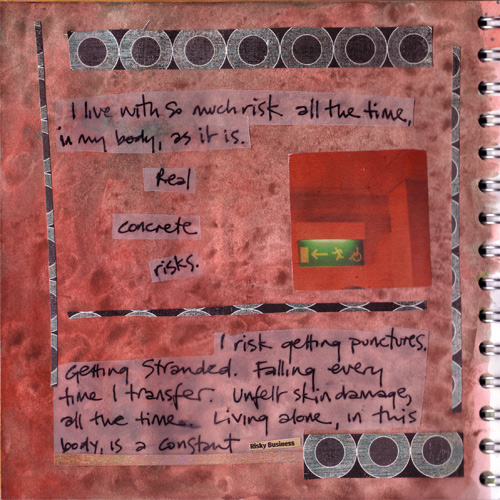 I live with so much risk all the time,
in my body, as it is.
Real
concrete
risks.
I risk getting punctures.
Getting Stranded. Falling every
time I transfer. Unfelt skin damage,
all the time. Living alone, in this
body, is a constant Risky Business